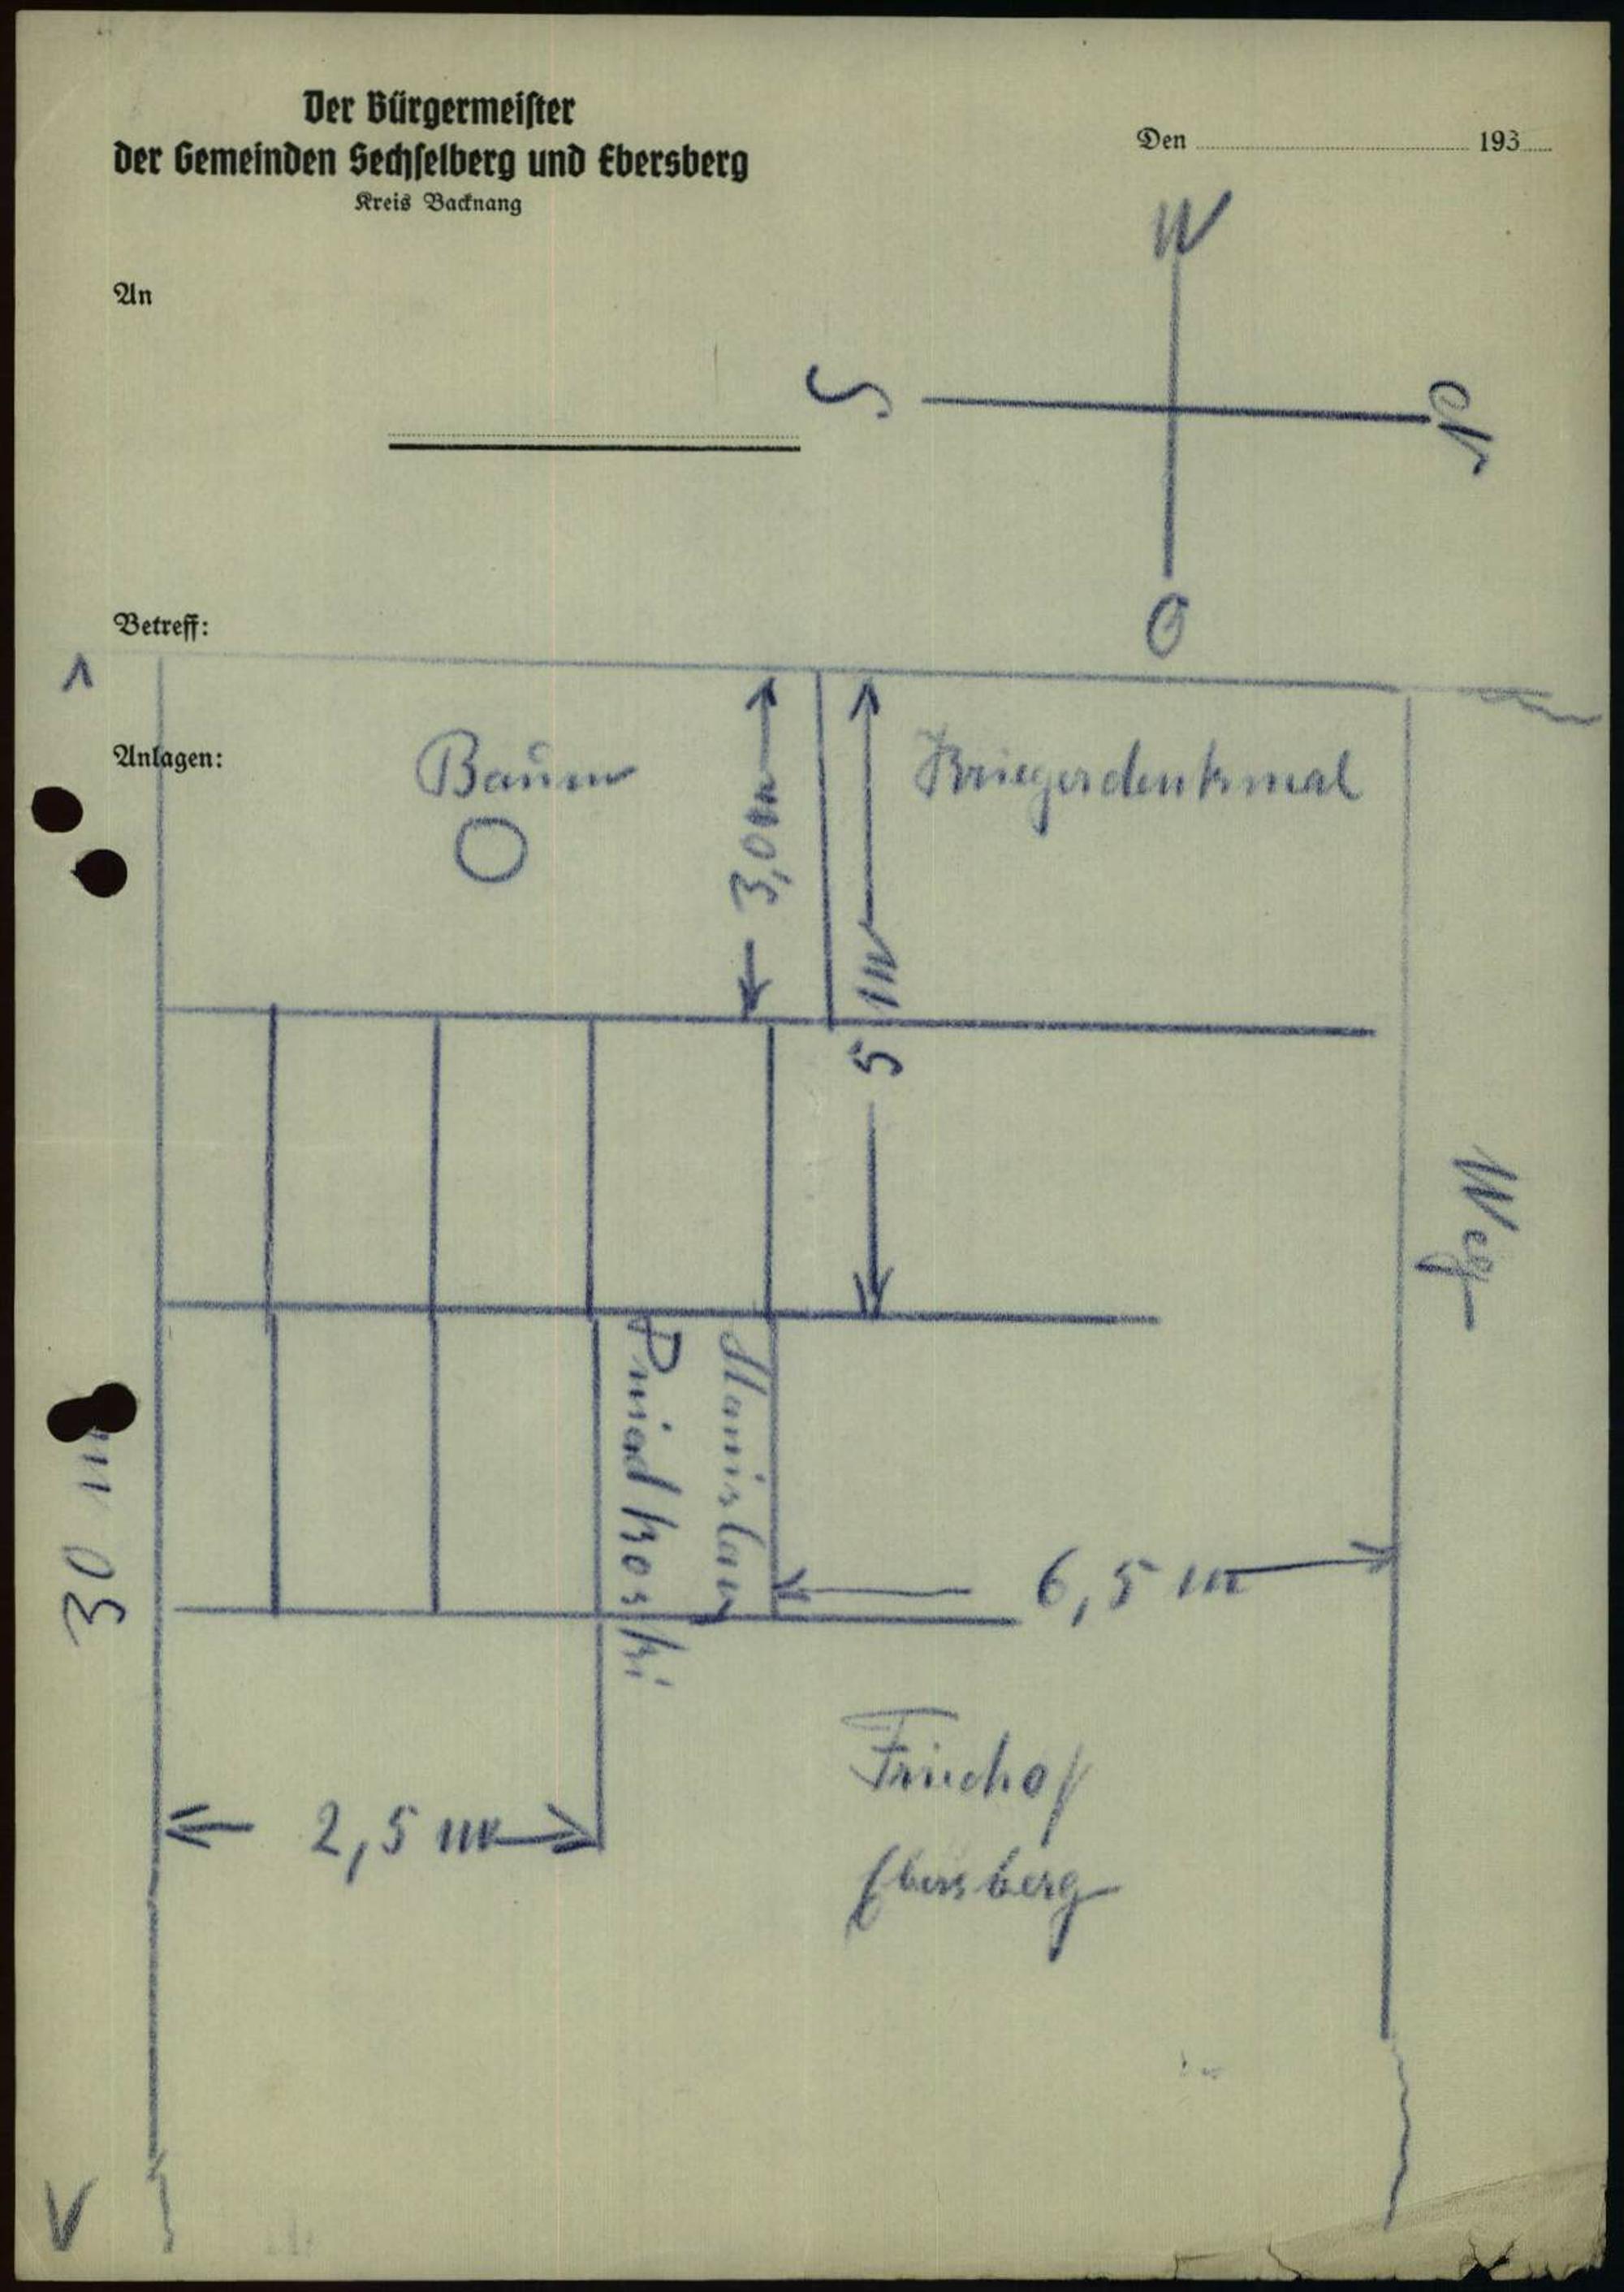 Der Bürgermeister
der Gemeinden Sechselberg und Ebersberg
Kreis Backnang
Den 193
An
W
S
N
O
Betreff:
Anlagen:
Baum
3,0m
5 m
Kriegerdenkmal
Weg
30 m
Stanislaus
6,5 m
2,5 m
Friedhof
Ebersberg